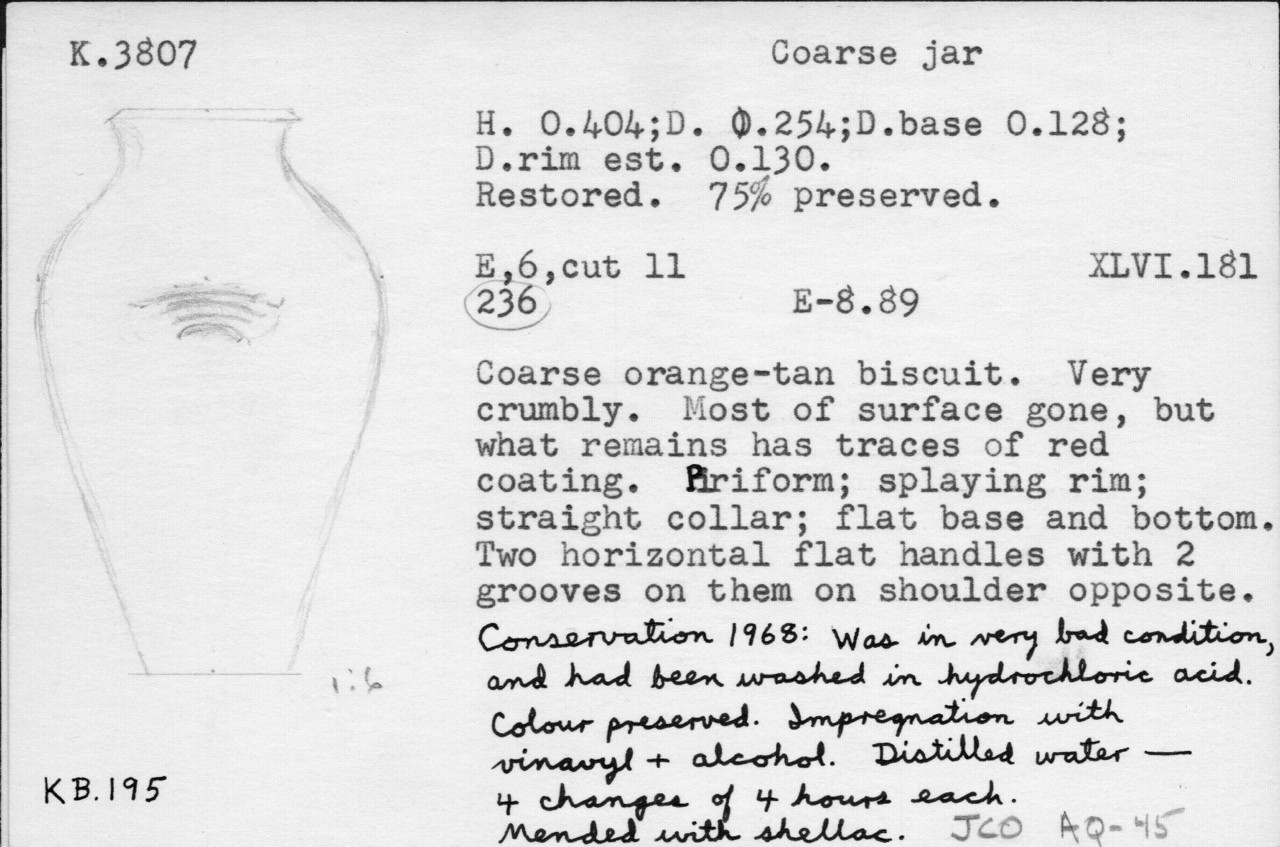 K.3807
Coarse jar
H. 0.404;D. 0.254;D.base 0.128;
D.rim est. 0.130.
Restored. 75% preserved.
E,6,cut 11 XLVI.181
236 E-8.89
Coarse orange-tan biscuit. Very
crumbly. Most of surface gone, but
what remains has traces of red
coating. Piriform; splaying rim;
straight collar; flat base and bottom.
Two horizontal flat handles with 2
grooves on them on shoulder opposite.
Conservation 1968: Was in very bad condition,
and had been washed in hydrochloric acid.
Colour preserved. Impregnation with
vinavyl + alcohol. Distilled water —
4 changes of 4 hours each.
Mended with shellac. JCO AQ-45
1:6
KB.195